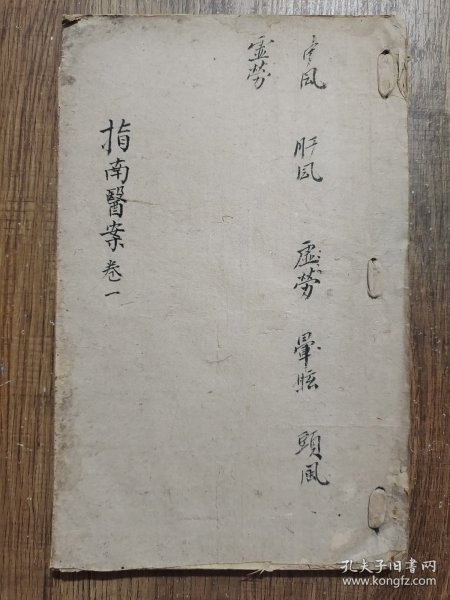 風 肝風 虛勞 暈眩 頭風
虛勞
指南醫案 卷一
孔夫子旧书网
www.kongfz.com